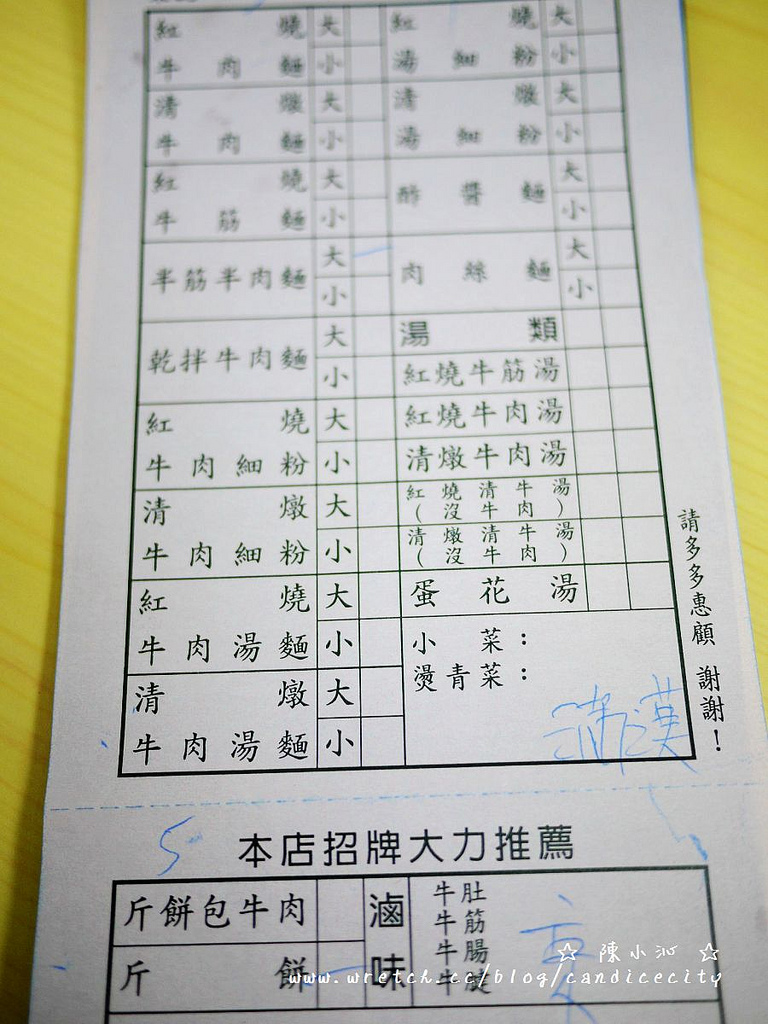 紅燒 大
牛肉麵 小
清燉 大
牛肉麵 小
紅燒 大
牛筋麵 小
半筋半肉麵 大
小
乾拌牛肉麵 大
小
紅燒 大
牛肉細粉 小
清燉 大
牛肉細粉 小
紅燒 大
牛肉湯麵 小
清燉 大
牛肉湯麵 小
紅燒 大
湯細粉 小
清燉 大
湯細粉 小
酢醬麵 大
小
肉絲麵 大
小
湯類
紅燒牛筋湯
紅燒牛肉湯
清燉牛肉湯
紅燒清牛湯
(沒牛肉)
清燉清牛湯
(沒牛肉)
蛋花湯
小菜：
燙青菜：
請多多惠顧 謝謝！
5
本店招牌大力推薦
斤餅包牛肉
斤餅
滷味
牛肚
牛筋
牛腸
牛腱
☆ 陳小沁 ☆
www.wretch.cc/blog/candicecity